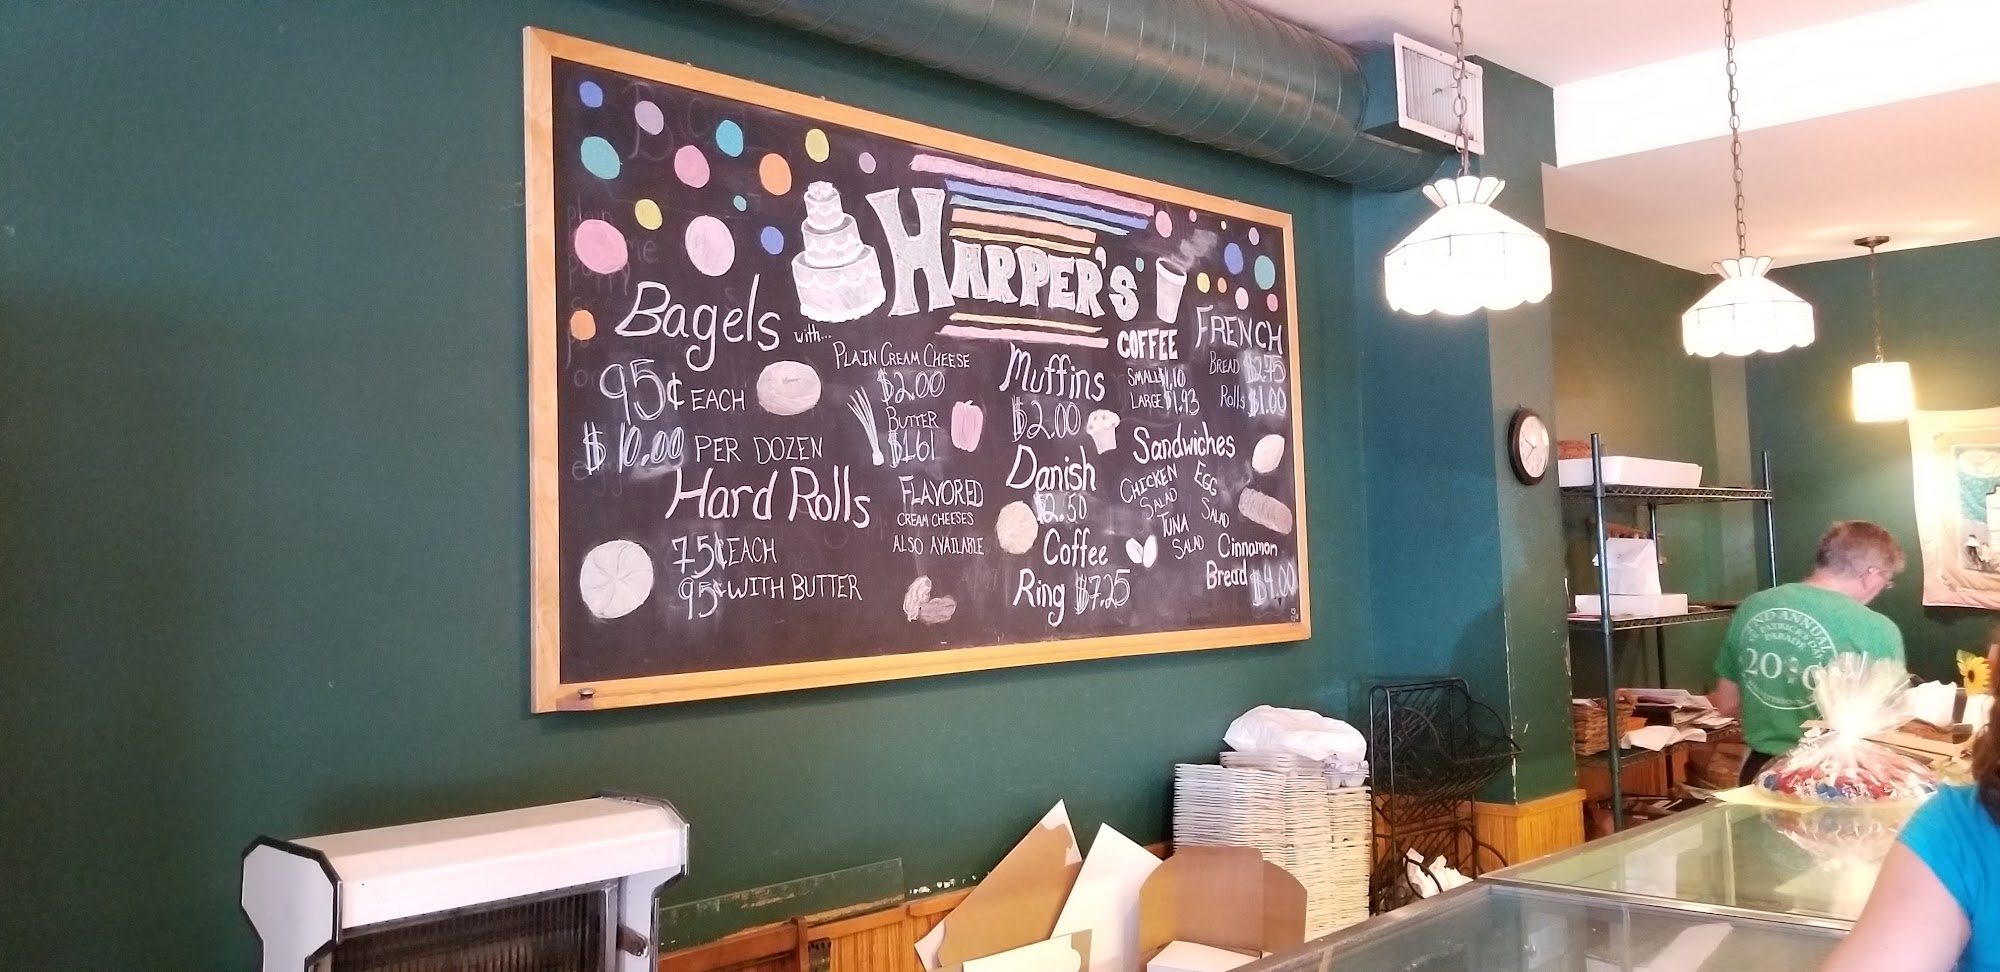 HARPER'S
Bagels
with...
95¢ EACH
$10.00 PER DOZEN
PLAIN CREAM CHEESE
$2.00
BUTTER
$1.61
Hard Rolls
75¢ EACH
95¢ WITH BUTTER
FLAVORED
CREAM CHEESES
ALSO AVAILABLE
Muffins
$2.00
Danish
$2.50
Coffee
Ring $7.25
COFFEE
SMALL $1.10
LARGE $1.93
FRENCH
BREAD $2.75
Rolls $1.00
Sandwiches
CHICKEN
SALAD
EGG
SALAD
TUNA
SALAD
Cinnamon
Bread $4.00
ANNUAL
ST. PATRICK'S DAY
PARADE